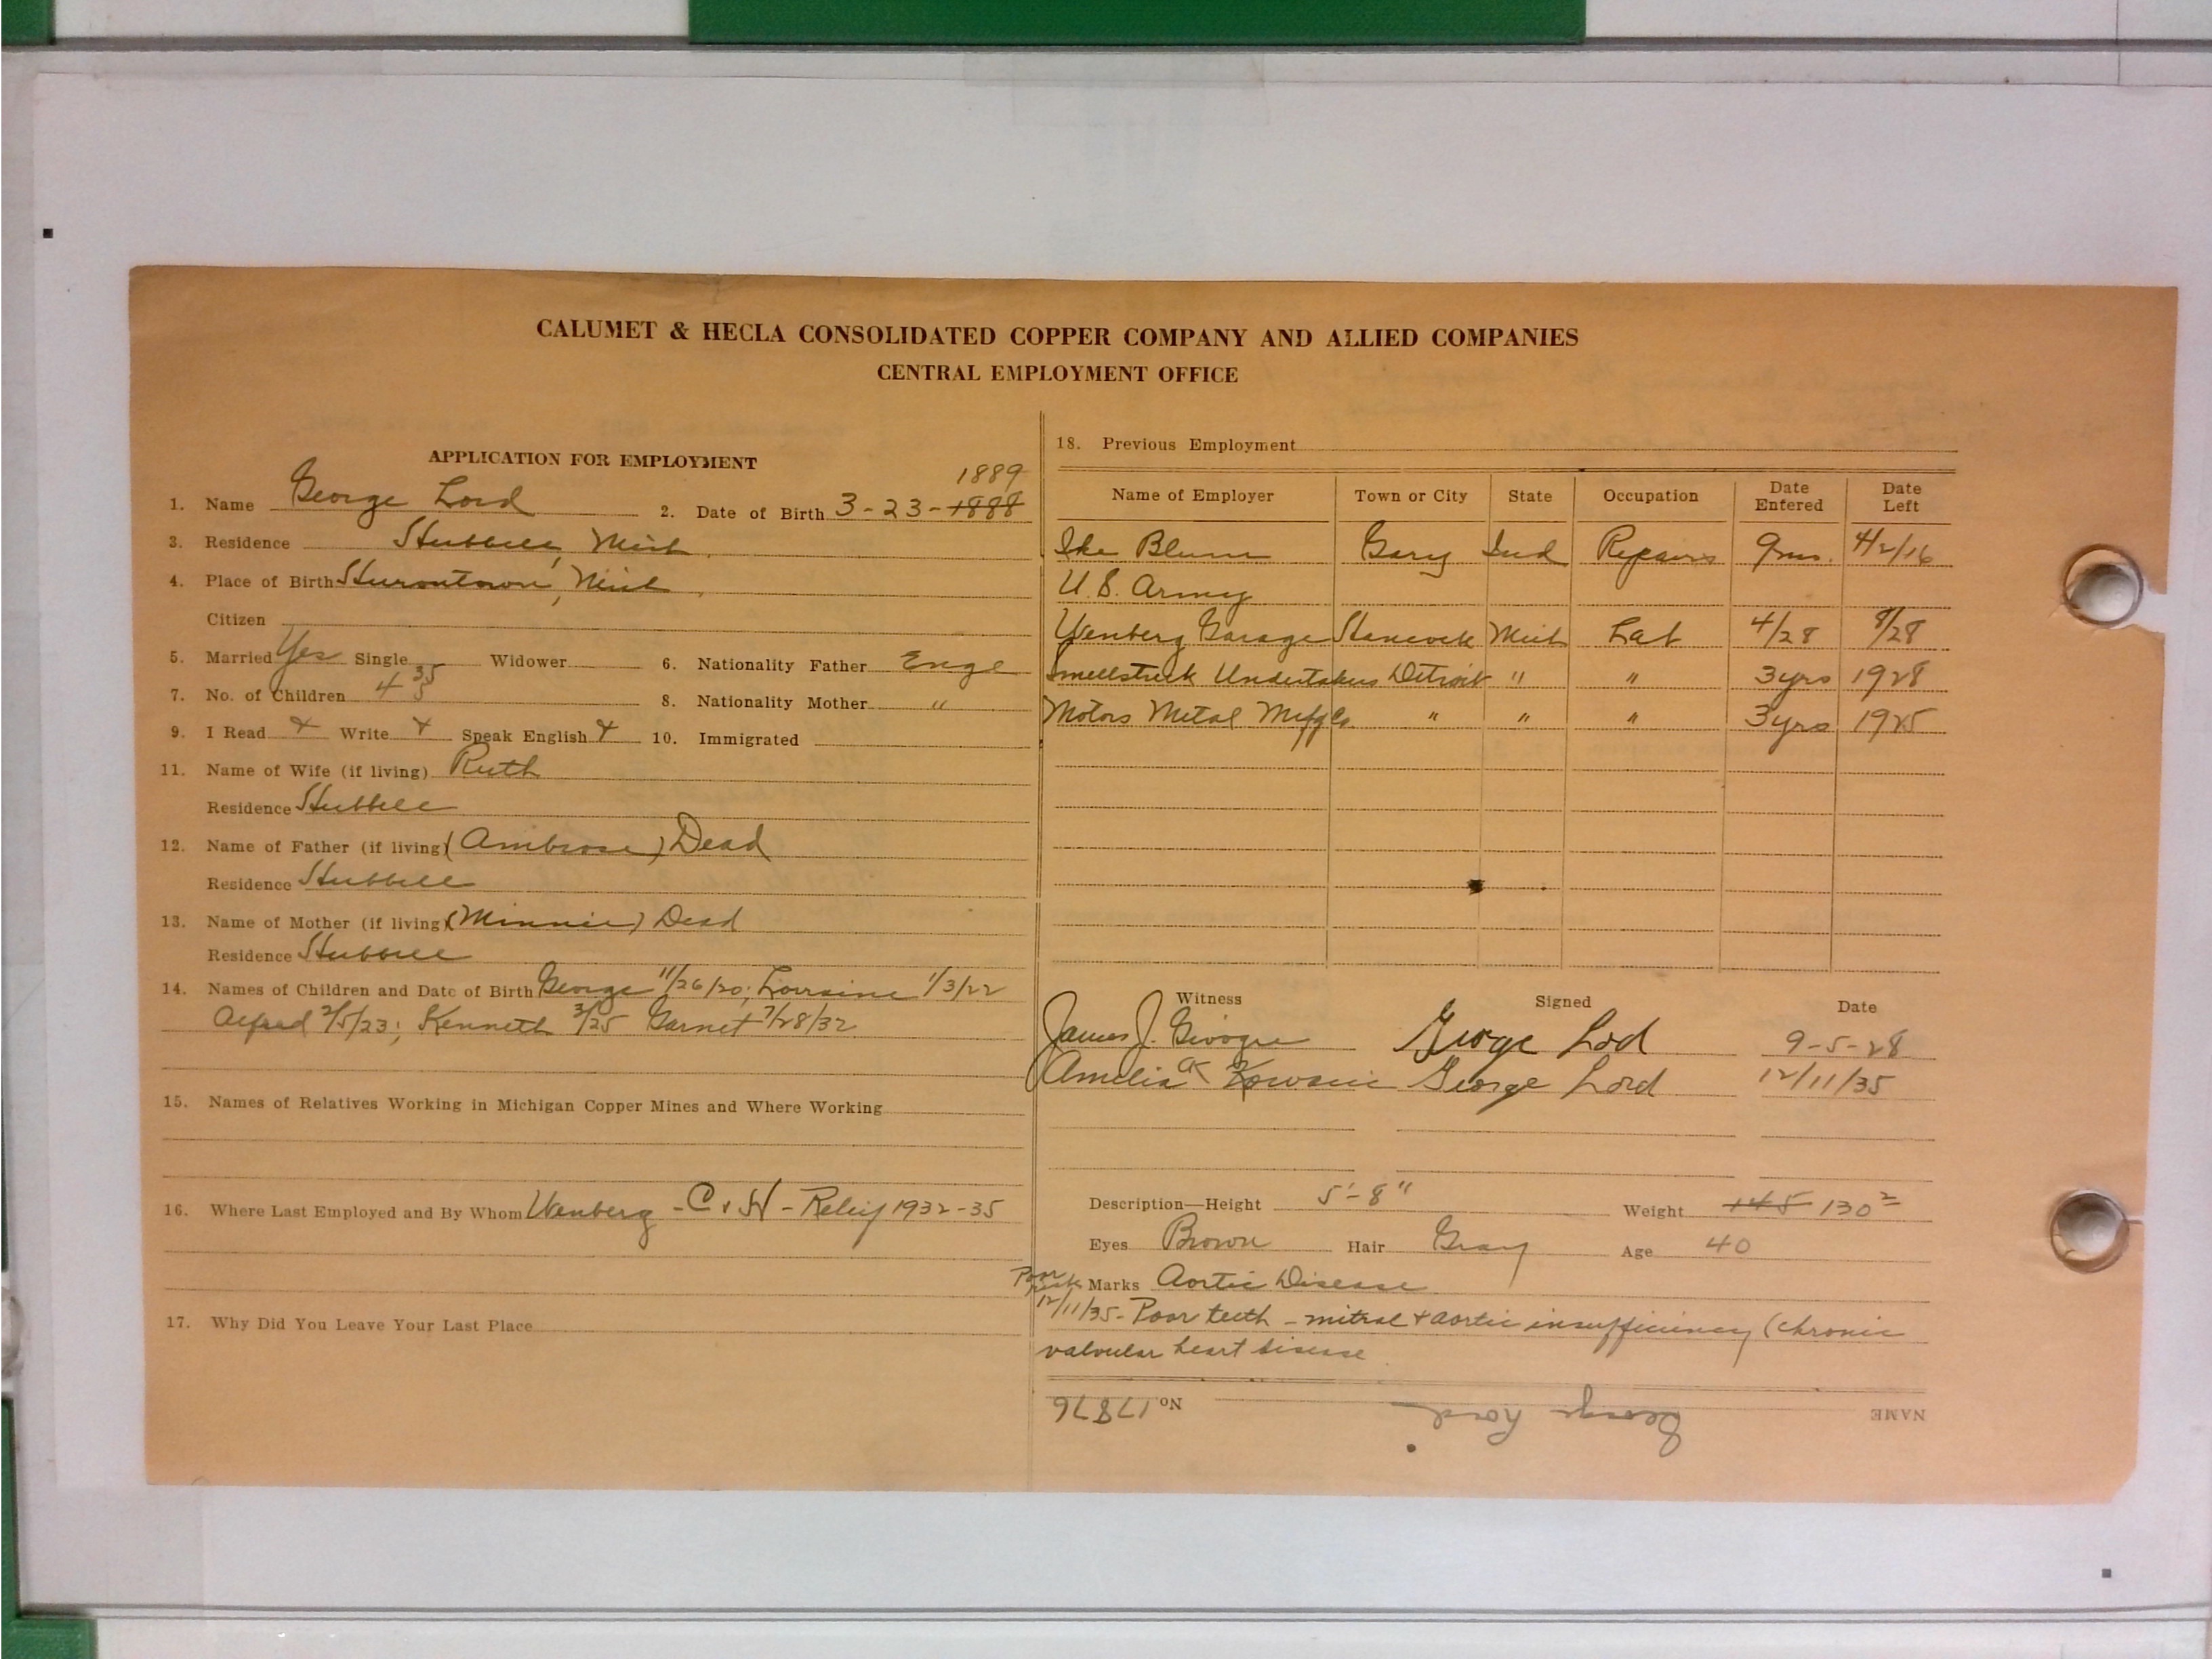 CALUMET & HECLA CONSOLIDATED COPPER COMPANY AND ALLIED COMPANIES
CENTRAL EMPLOYMENT OFFICE
APPLICATION FOR EMPLOYMENT
1889
1. Name George Lord 2. Date of Birth 3-23-1888
3. Residence Hubbell, Mich.
4. Place of Birth Hurontown, Mich.
Citizen
5. Married Yes Single Widower 6. Nationality Father Engl
7. No. of Children 4 35 5 8. Nationality Mother "
9. I Read Write Speak English 10. Immigrated
11. Name of Wife (if living) Ruth
Residence Hubbell
12. Name of Father (if living) (Ambrose) Dead
Residence Hubbell
13. Name of Mother (if living) (Minnie) Dead
Residence Hubbell
14. Names of Children and Date of Birth George 11/26/20; Lorraine 1/3/22
Alfred 2/5/23; Kenneth 3/25 Garnet 7/28/32
15. Names of Relatives Working in Michigan Copper Mines and Where Working
16. Where Last Employed and By Whom Wenberg - C & H - Relief 1932-35
17. Why Did You Leave Your Last Place
18. Previous Employment
Name of Employer Town or City State Occupation Date Entered Date Left
Ike Blum Gary Ind Repairs 9 mo. 4/2/16
U.S. Army
Wenberg Garage Hancock Mich Lab 4/28 8/28
Undertakers Detroit " " 3 yrs 1928
Motors Metal Mfg Co " " " 3 yrs 1925
Witness Signed Date
James J. George Lord 9-5-28
Amelia George Lord 12/11/35
Description—Height 5'-8" Weight 145 130
Eyes Brown Hair Gray Age 40
Poor risk Marks Aortic Disease
12/11/35 - Poor teeth - mitral & aortic insufficiency (chronic
valvular heart disease
NAME George Lord No. 17876